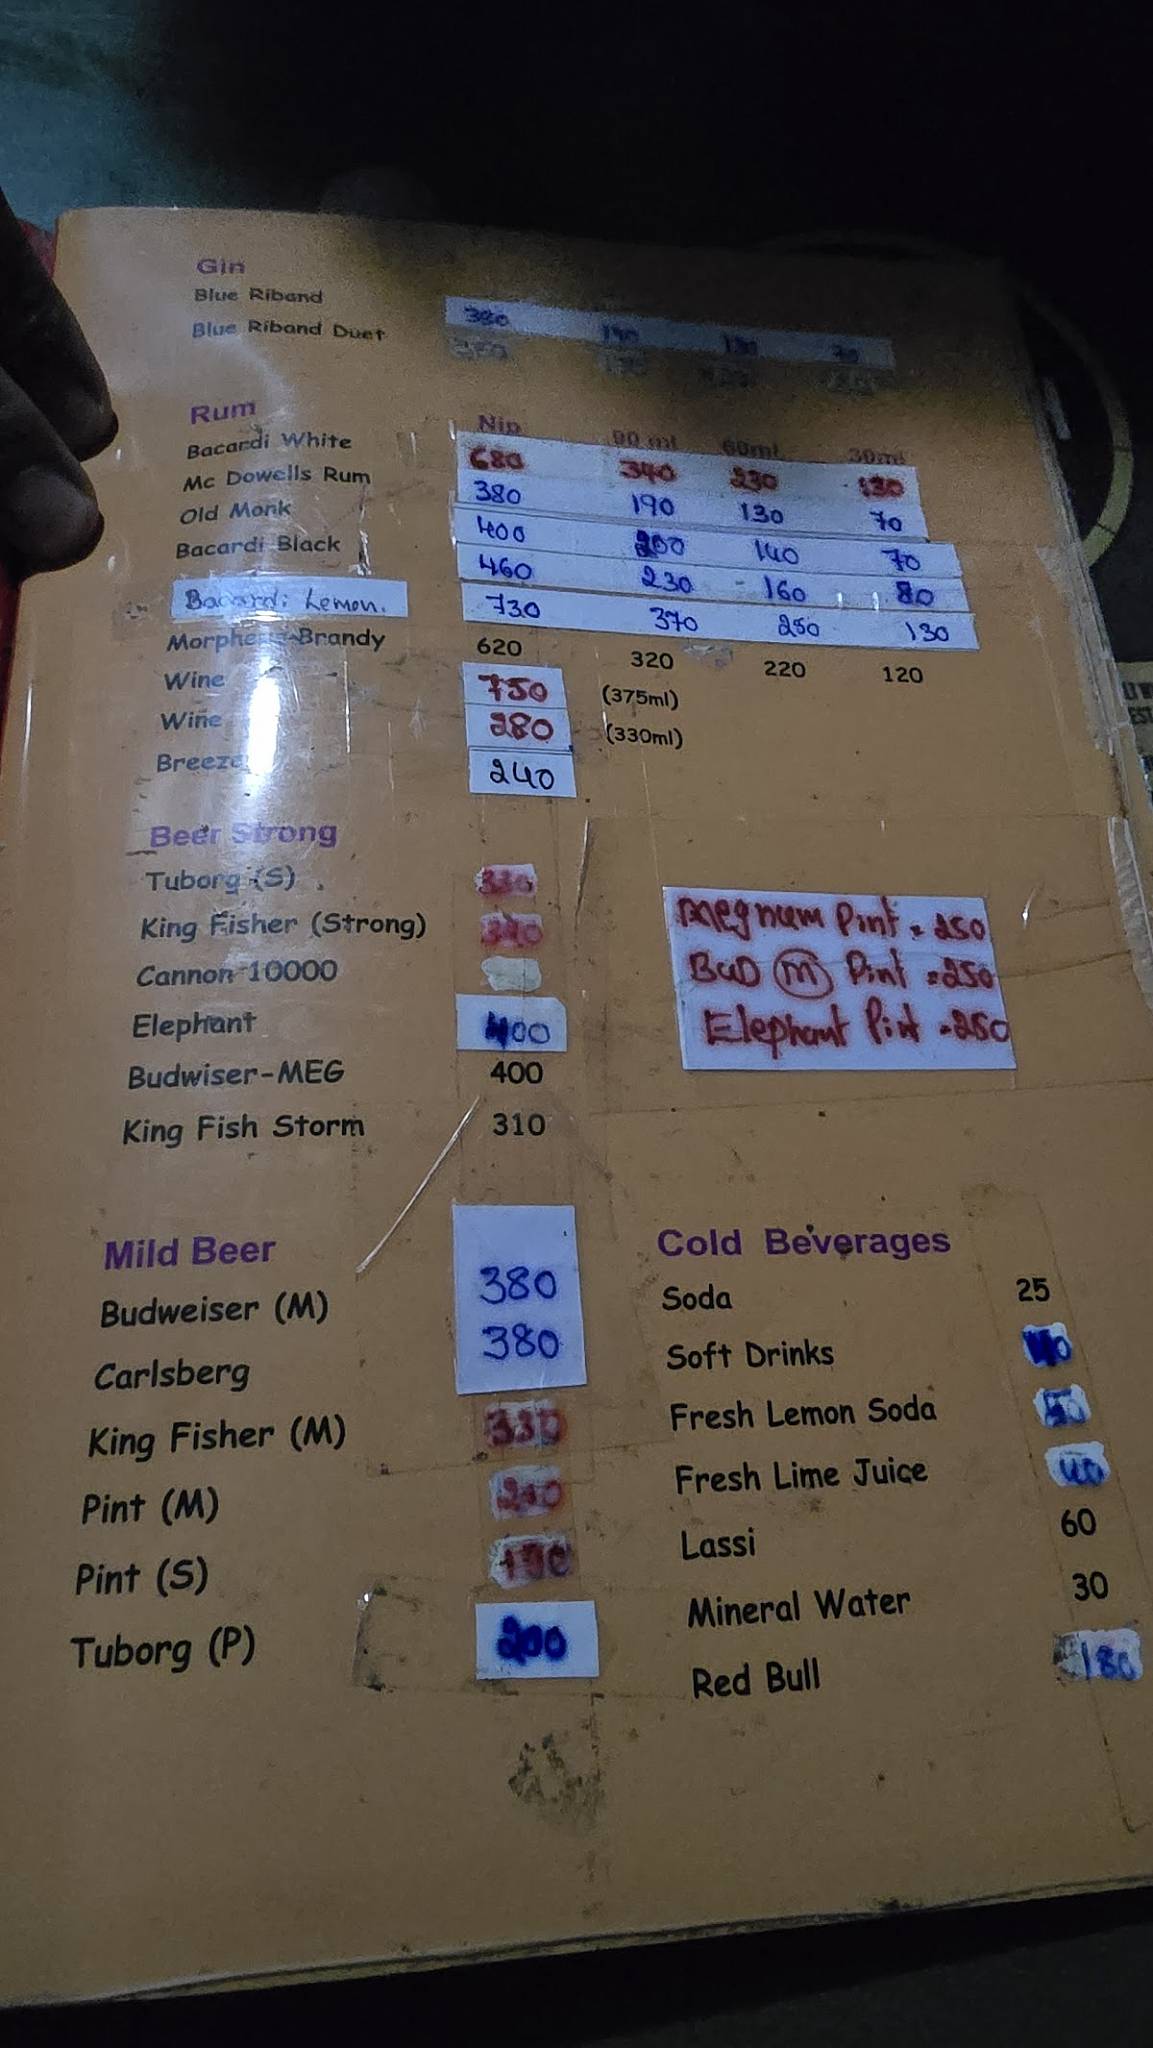 Gin
Blue Riband
Blue Riband Duet 380 190 130 70
Rum Nip 90 ml 60ml 30ml
Bacardi White 680 340 230 130
Mc Dowells Rum 380 190 130 70
Old Monk 400 200 140 70
Bacardi Black 460 230 160 80
Bacardi Lemon. 730 370 250 130
Morpheus Brandy 620 320 220 120
Wine 750 (375ml)
Wine 280 (330ml)
Breezer 240
Beer Strong
Tuborg (S) 330
King Fisher (Strong)
Cannon 10000
Elephant 400
Budwiser-MEG 400
King Fish Storm 310
Megnum Pint = 250
BUD (M) Pint = 250
Elephant Pint = 250
Mild Beer
Budweiser (M) 380
Carlsberg 380
King Fisher (M) 330
Pint (M)
Pint (S)
Tuborg (P) 200
Cold Beverages
Soda 25
Soft Drinks 40
Fresh Lemon Soda 50
Fresh Lime Juice 40
Lassi 60
Mineral Water 30
Red Bull 180